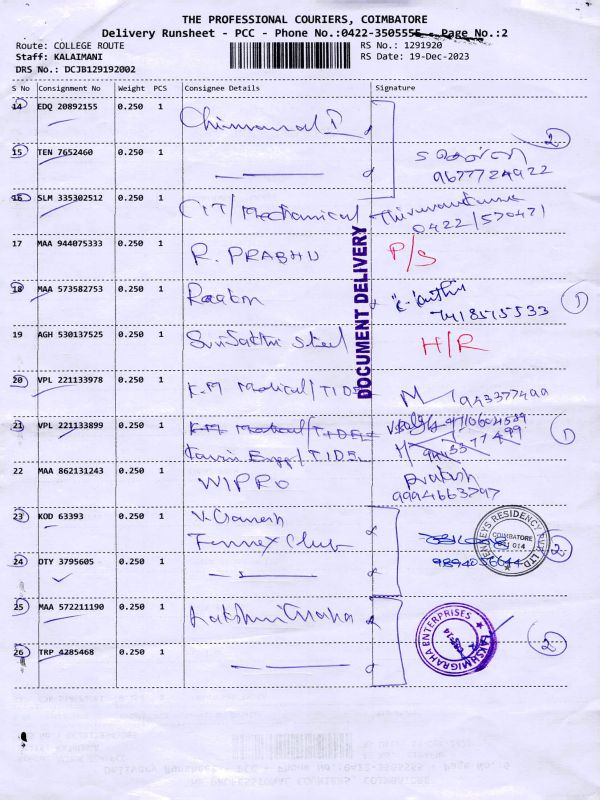 THE PROFESSIONAL COURIERS, COIMBATORE
Delivery Runsheet - PCC - Phone No.:0422-3505555 - Page No.:2
Route: COLLEGE ROUTE RS No.: 1291920
Staff: KALAIMANI RS Date: 19-Dec-2023
DRS No.: DCJB129192002
S No Consignment No Weight PCS Consignee Details Signature
14 EDQ 20892155 0.250 1
2
15 TEN 7652460 0.250 1
9677724922
16 SLM 335302512 0.250 1 CIT/Mechanical
0422/570471
17 MAA 944075333 0.250 1 R. PRABHU P/S
DOCUMENT DELIVERY
18 MAA 573582753 0.250 1 1
7418515533
19 AGH 530137525 0.250 1 Sri Sakthi Steel H/R
20 VPL 221133978 0.250 1 K.M Medical/TIDEL
21 VPL 221133899 0.250 1 K.M Medical/TIDEL
1
22 MAA 862131243 0.250 1 WIPRO Prakash
9994663797
23 KOD 63393 0.250 1 V. Ganesh
Fennex Club
COIMBATORE
2
24 DTY 3795605 0.250 1 9894056644
25 MAA 572211190 0.250 1 Lakshmi Graha
LAKSHMIGRAHA ENTERPRISES
26 TRP 4285468 0.250 1 2